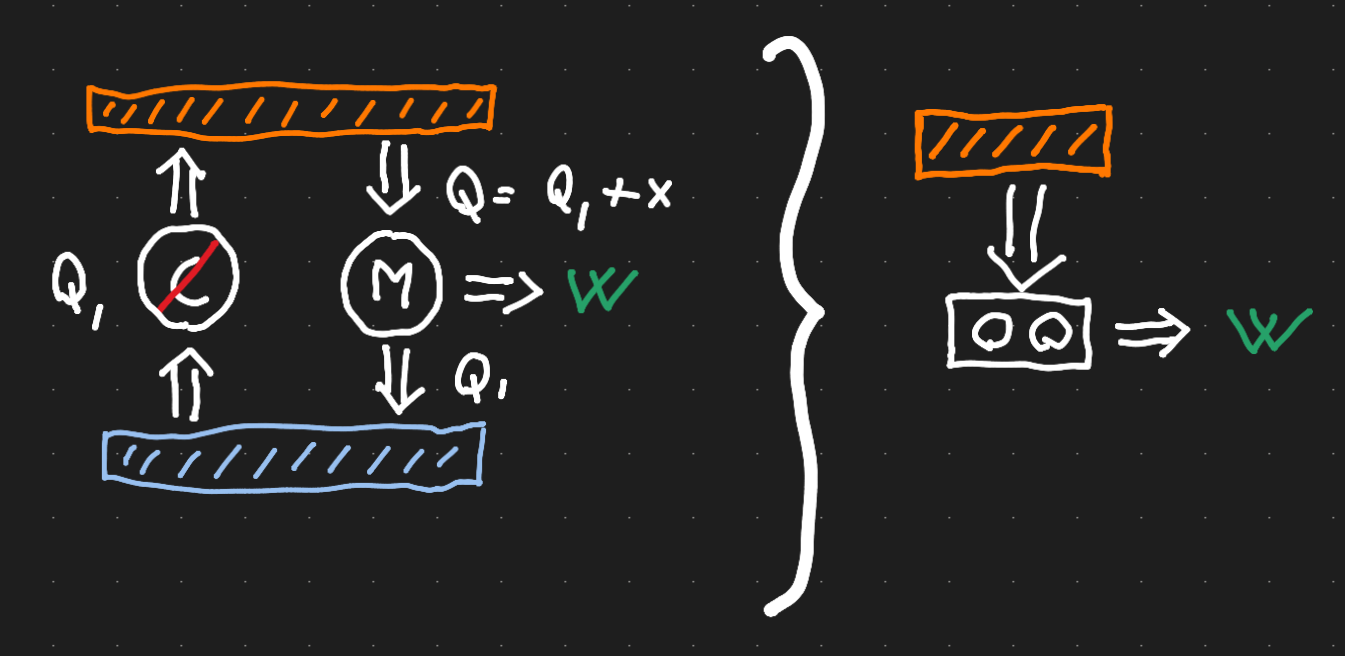 Q = Q₁ + x
Q₁
C
M
W
Q₁
W